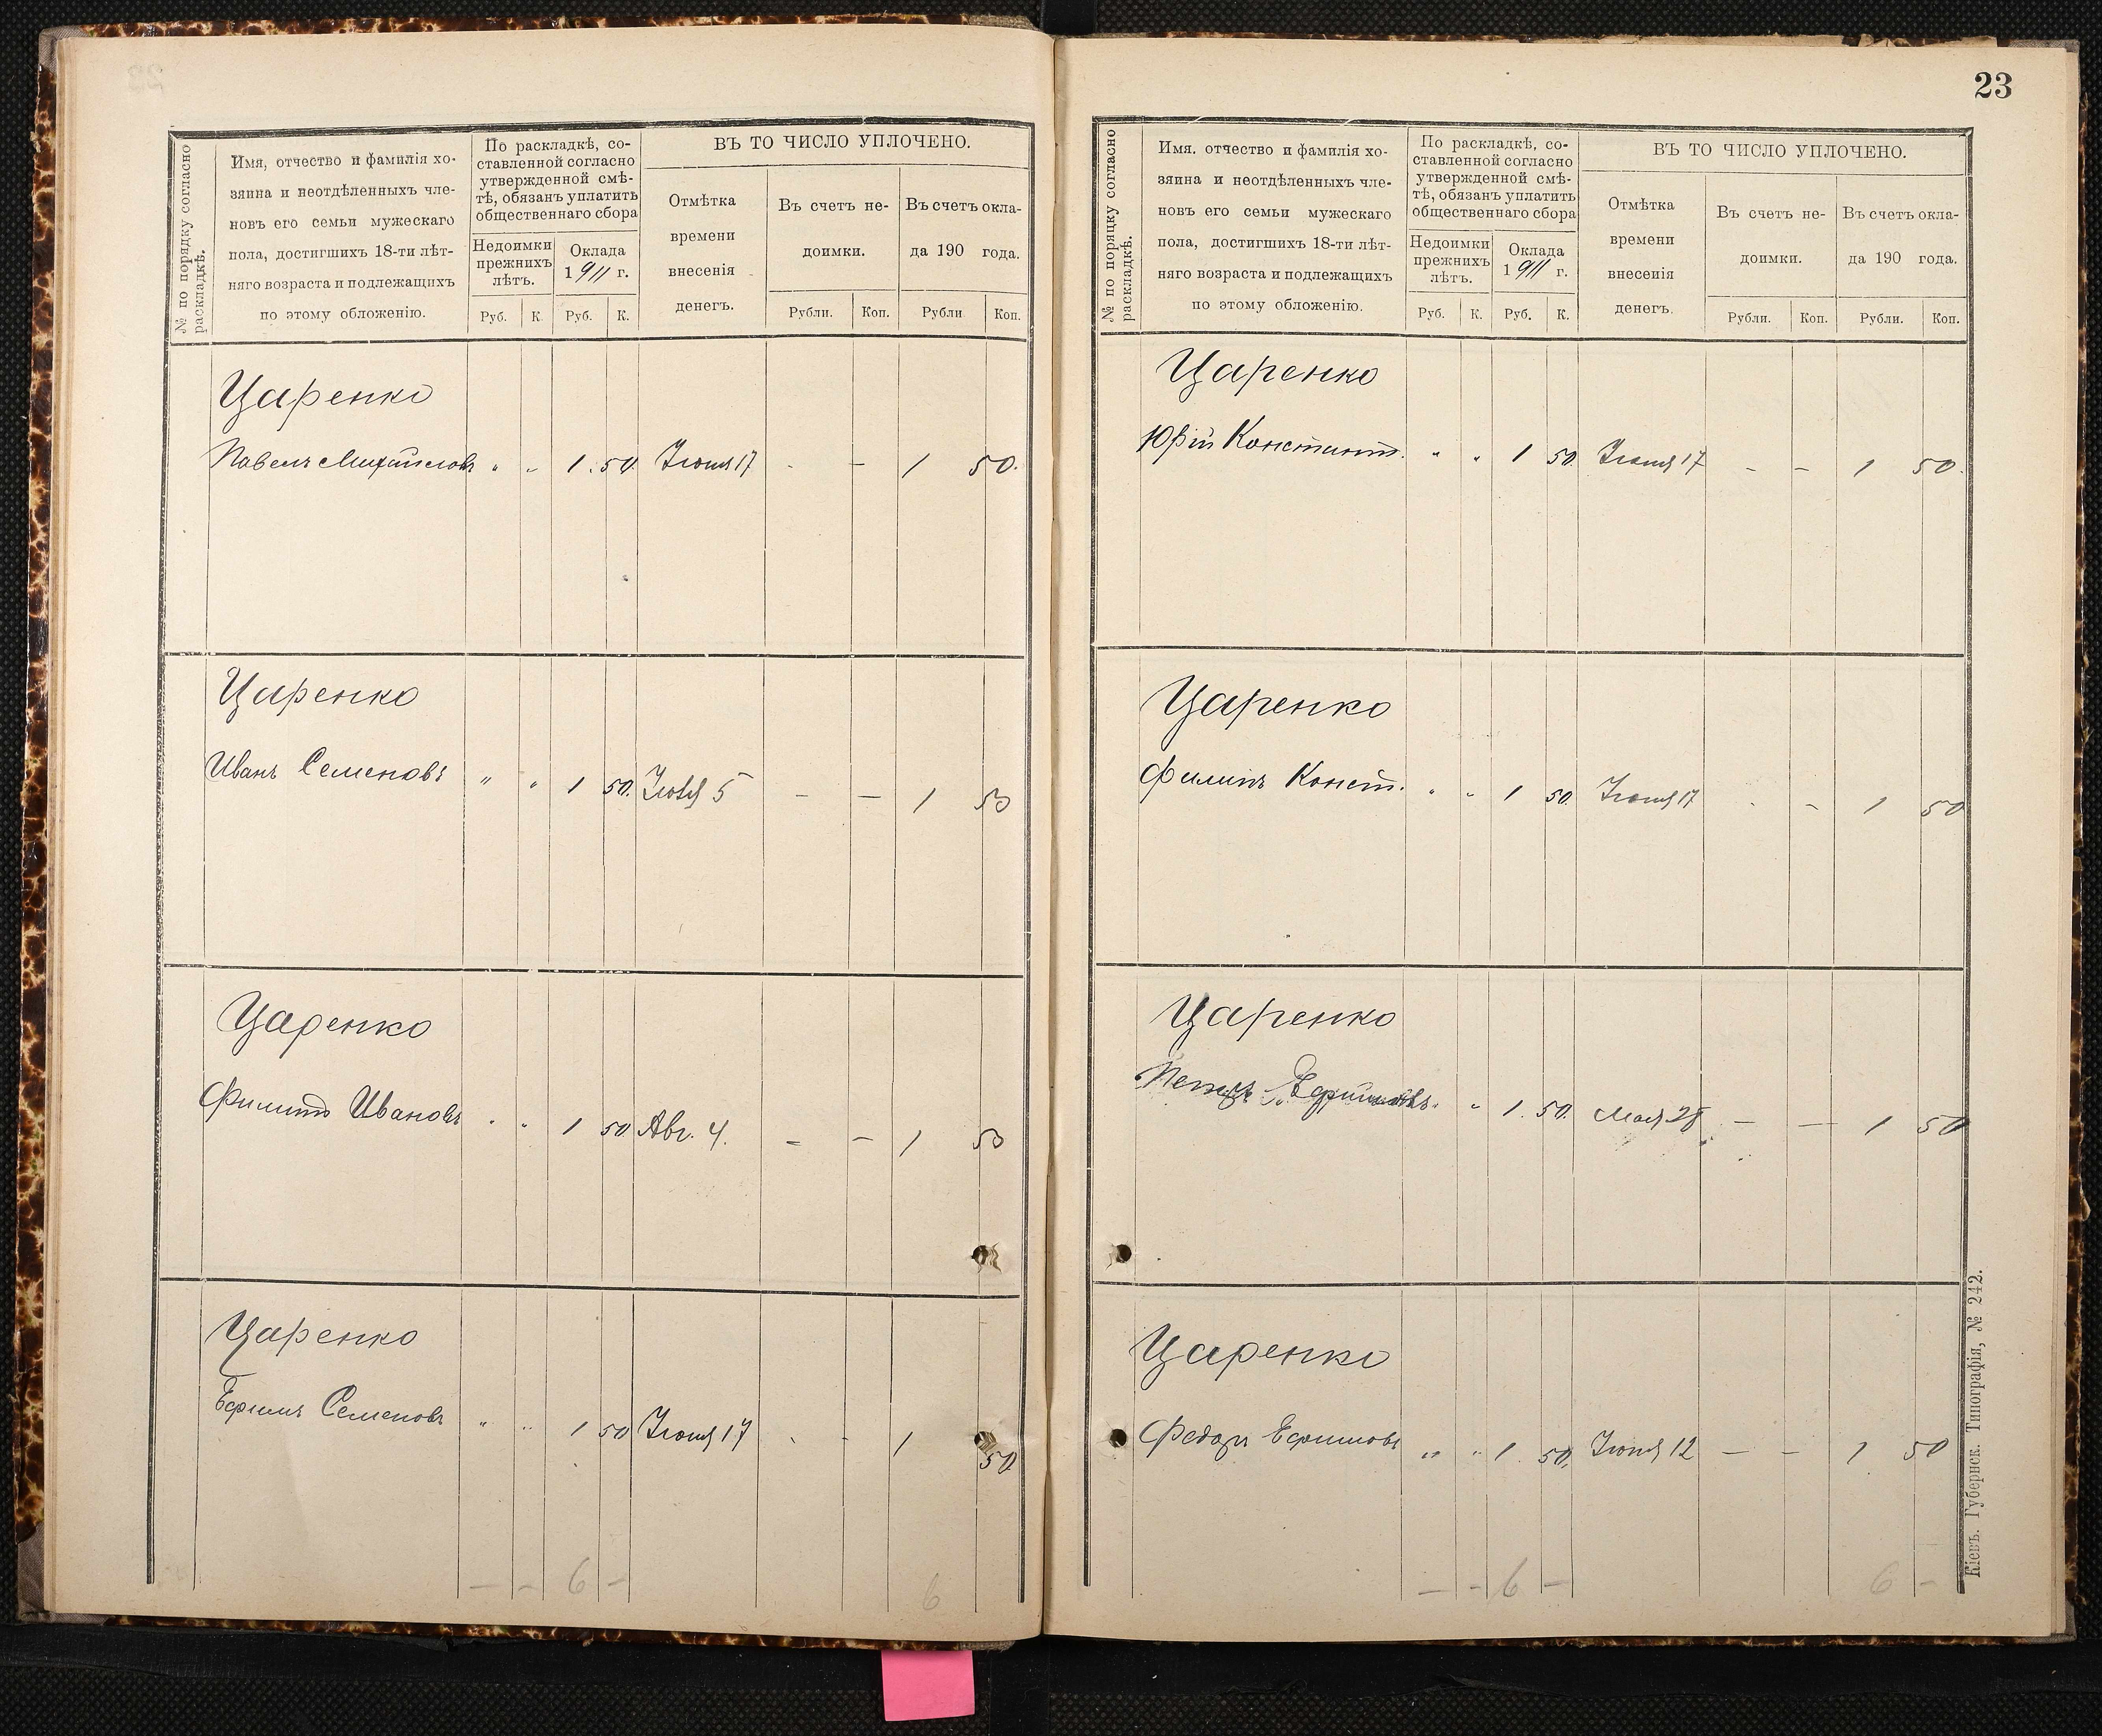 № по порядку согласно
раскладкѣ.
Имя, отчество и фамилія хо-
зяина и неотдѣленныхъ чле-
новъ его семьи мужескаго
пола, достигшихъ 18-ти лѣт-
няго возраста и подлежащихъ
по этому обложенію.
По раскладкѣ, со-
ставленной согласно
утвержденной смѣ-
тѣ, обязанъ уплатить
общественнаго сбора
Недоимки
прежнихъ
лѣтъ.
Оклада
1911 г.
Руб. К. Руб. К.
ВЪ ТО ЧИСЛО УПЛОЧЕНО.
Отмѣтка
времени
внесенія
денегъ.
Въ счетъ не-
доимки.
Въ счетъ окла-
да 190 года.
Рубли. Коп. Рубли Коп.
Царенко
Павелъ Михайловъ " " 1. 50. Іюня 17 - - 1 50.
Царенко
Иванъ Семеновъ " " 1 50. 5 - - 1 50
Царенко
Филиппъ Ивановъ " " 1 50 Авг. 4. - - 1 50
Царенко
Ефимъ Семеновъ " " 1 50 Іюня 17 - - 1 50
- - 6 - 6
23
№ по порядку согласно
раскладкѣ.
Имя. отчество и фамилія хо-
зяина и неотдѣленныхъ чле-
новъ его семьи мужескаго
пола, достигшихъ 18-ти лѣт-
няго возраста и подлежащихъ
по этому обложенію.
По раскладкѣ, со-
ставленной согласно
утвержденной смѣ-
тѣ, обязанъ уплатить
общественнаго сбора
Недоимки
прежнихъ
лѣтъ.
Оклада
1911 г.
Руб. К. Руб. К.
ВЪ ТО ЧИСЛО УПЛОЧЕНО.
Отмѣтка
времени
внесенія
денегъ.
Въ счетъ не-
доимки.
Въ счетъ окла-
да 190 года.
Рубли. Коп. Рубли. Коп.
Царенко
Юрій Константин. " " 1 50 Іюня 17 - - 1 50.
Царенко
Филипъ Конст. " " 1 50 Іюня 17 - - 1 50
Царенко
Петръ Ефимовъ " " 1. 50. Мая 28 - - 1 50
Царенко
Федоръ Ефимовъ " " 1. 50. Іюня 12 - - 1 50
- - 6 - 6 -
Кіевъ. Губернск. Типографія, № 242.